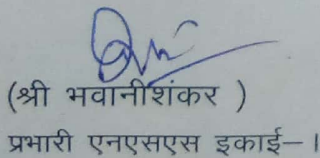 (श्री भवानीशंकर )
प्रभारी एनएसएस इकाई– ।